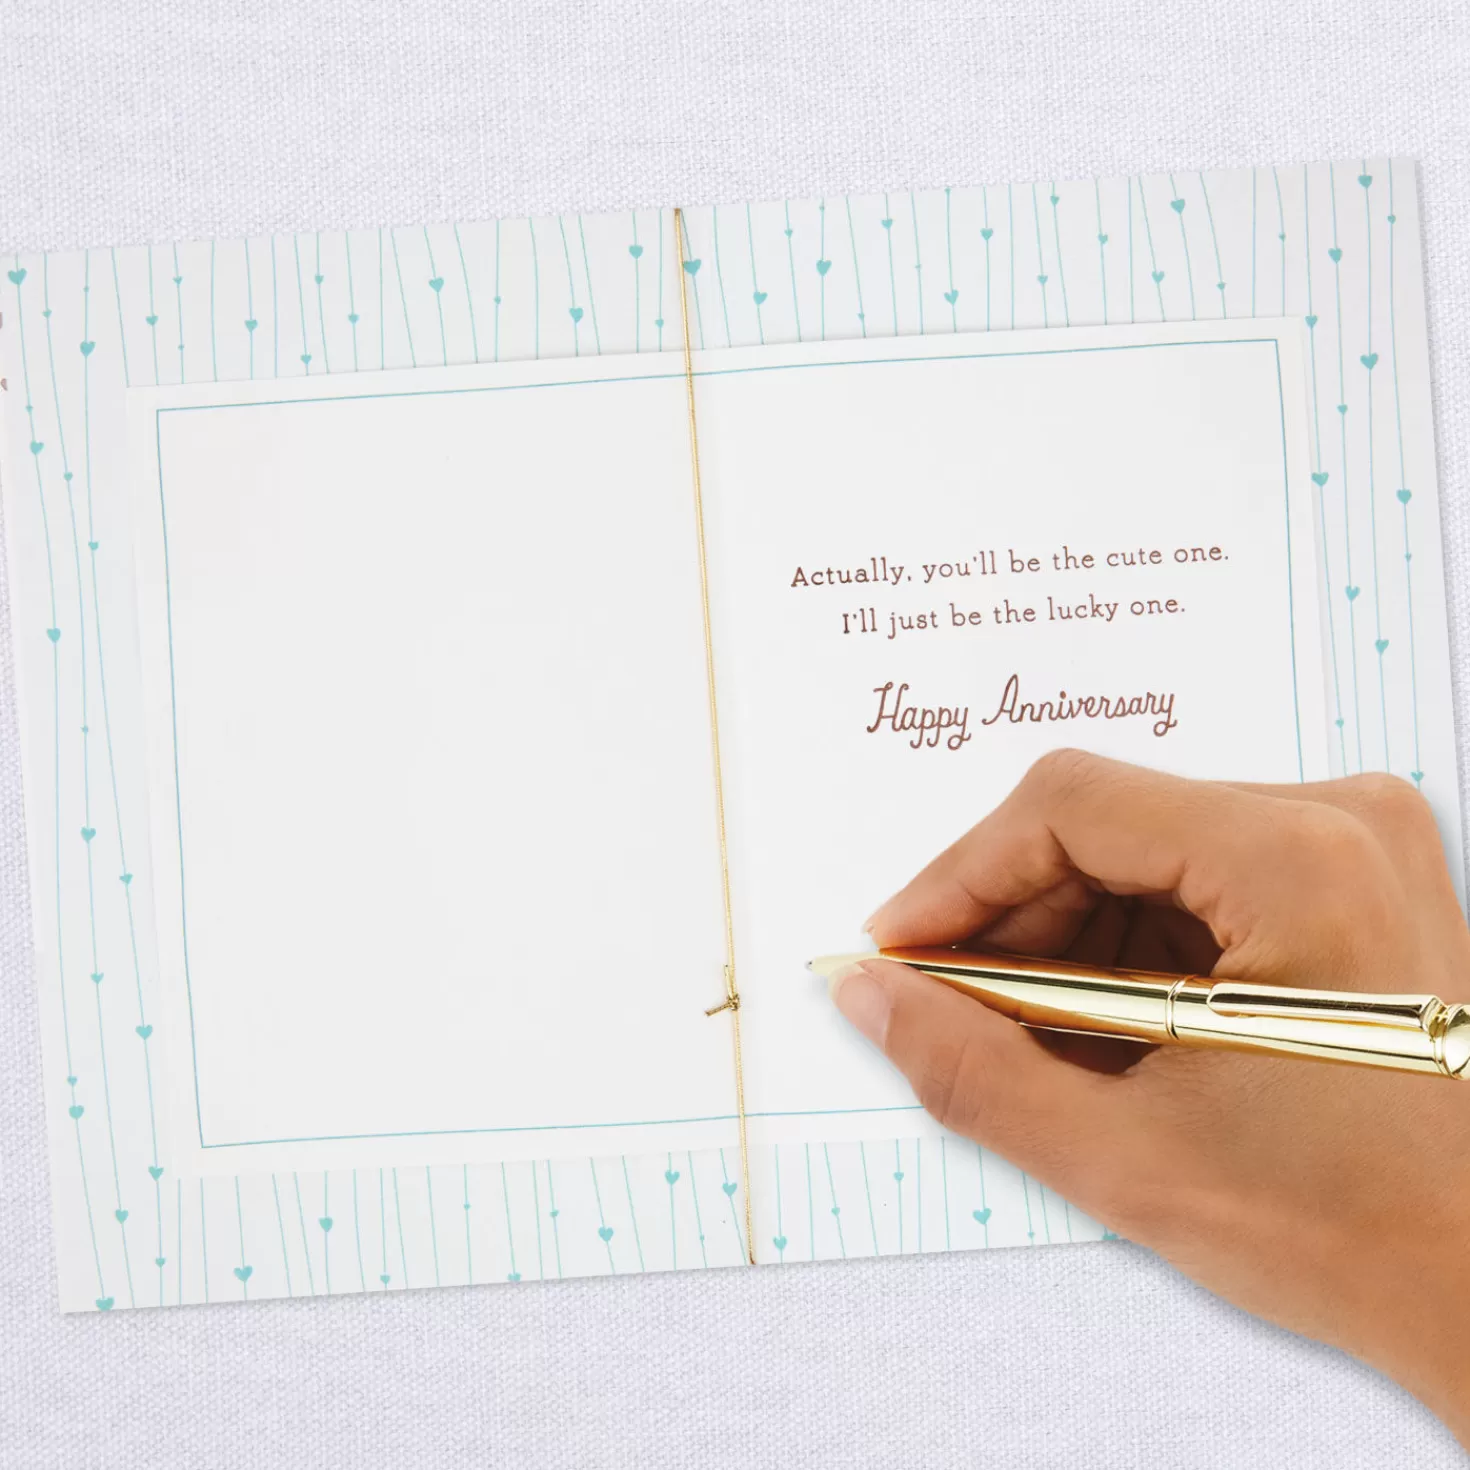 Actually, you'll be the cute one.
I'll just be the lucky one.
Happy Anniversary